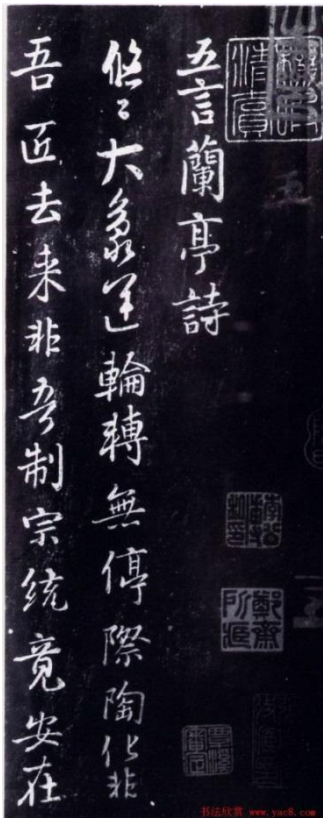 五言蘭亭詩
悠〻大象運輪轉無停際陶化非
吾匠去来非吾制宗統竟安在
清賞
鄭齋
书法欣赏 www.yac8.com